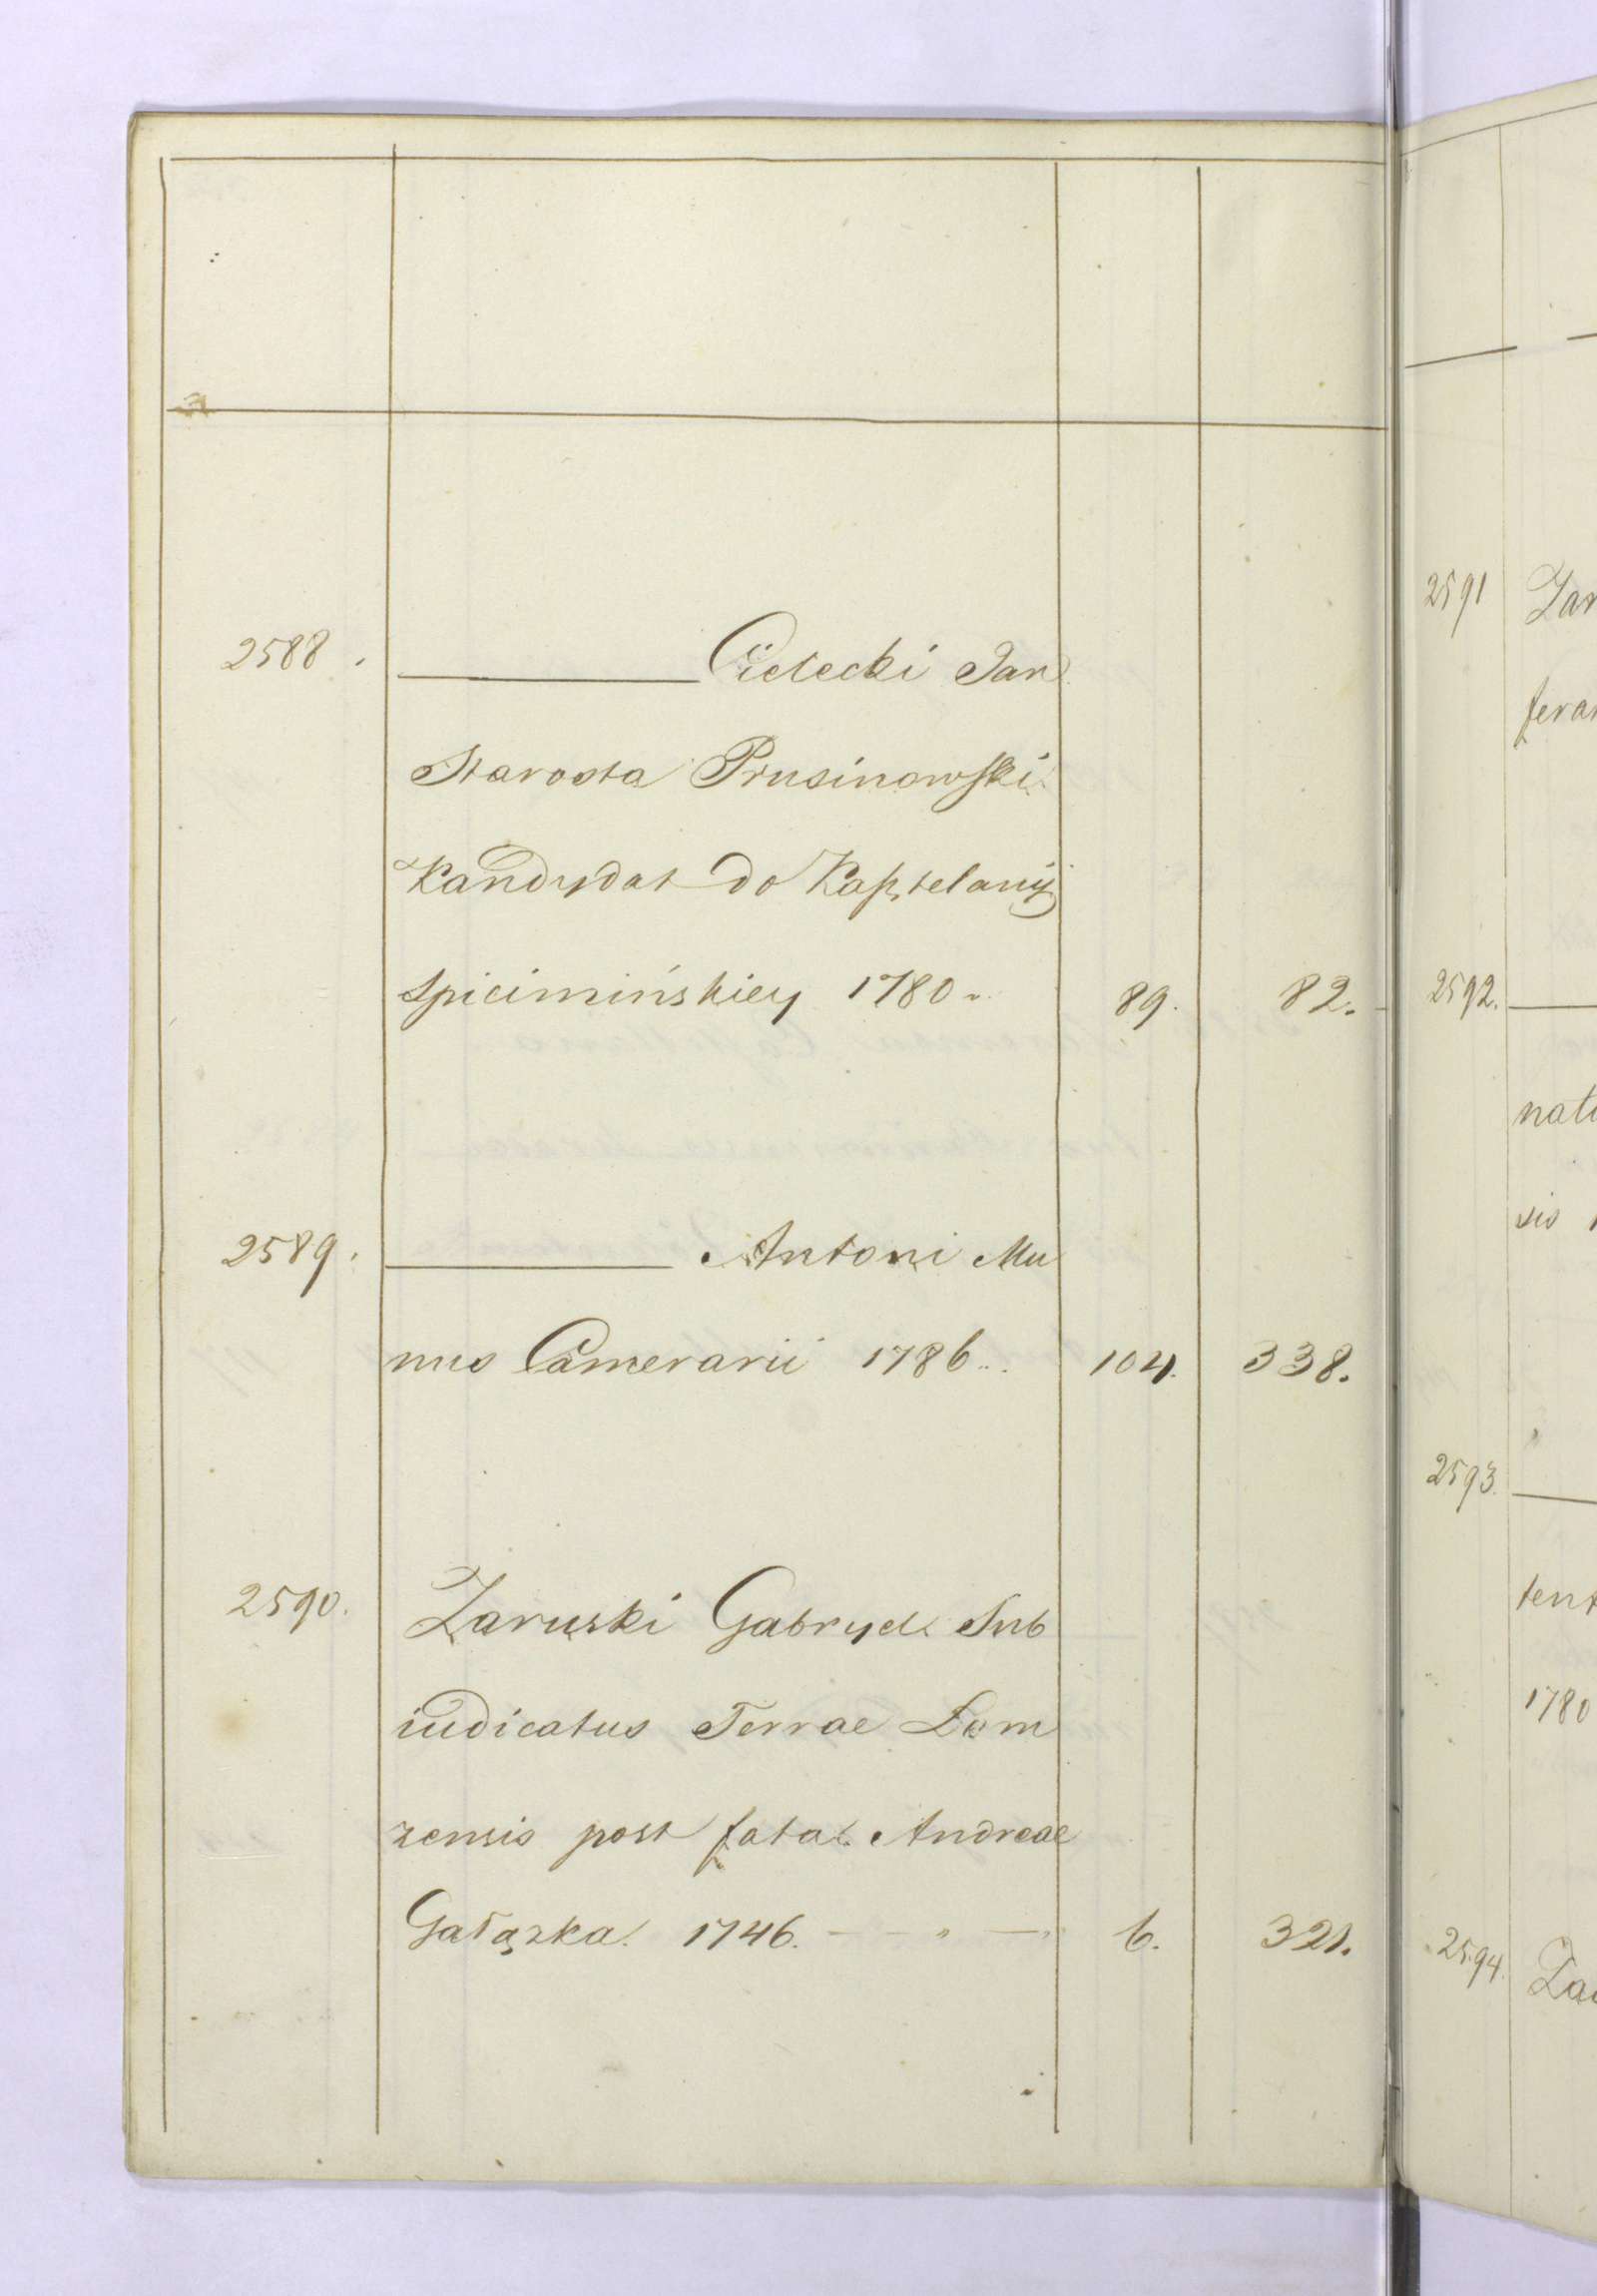 2588. ——— Cielecki Jan
Starosta Prusinowski
Kandydat do Kasztelanij
Spicimińskiey 1780. 89. 82.
2589. ——— Antoni Mu
nus Camerarii 1786... 104. 338.
2590. Zaruski Gabryel Sub
iudicatus Terrae Lom
zensis post fata Andreae
Gałązka 1746. — — " — 6. 321.
2591 Zar
feran
2592. —
natu
sis
2593. —
tent
1780
2594. Za